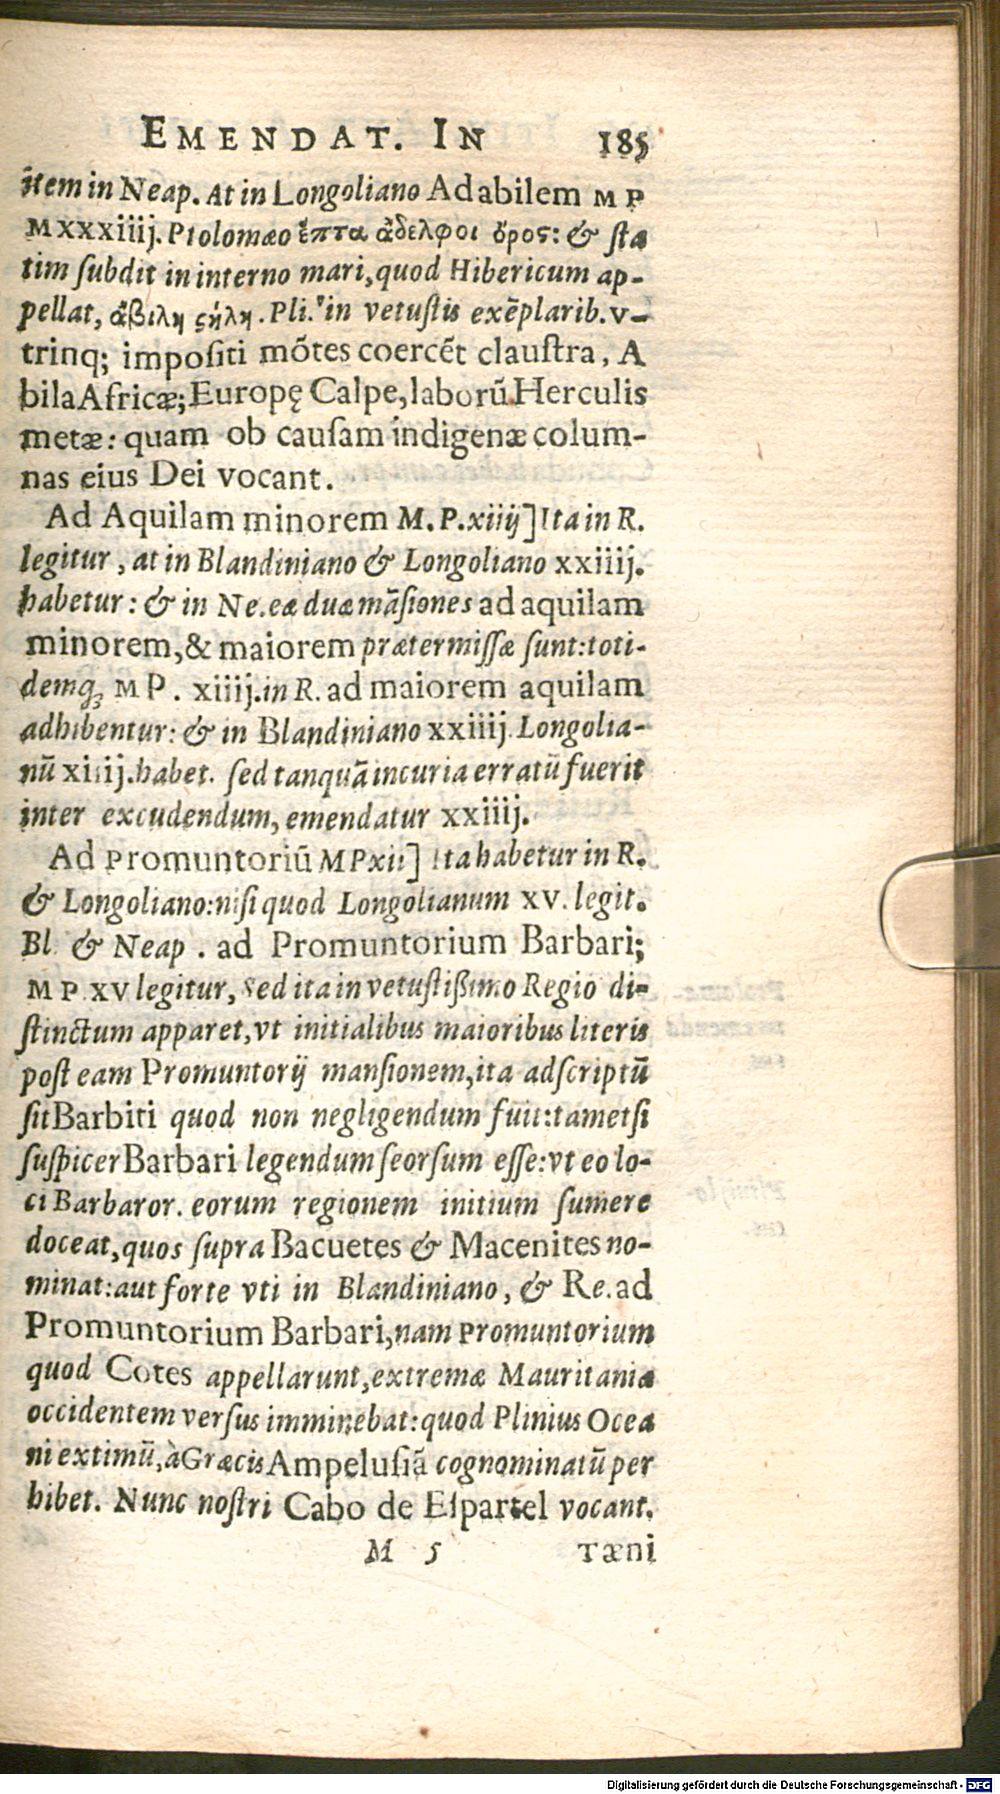 EMENDAT. IN 185
item in Neap. At in Longoliano Ad abilem MP
MXXXiiij. Ptolomæo ἑπτα ἀδελφοι ὄρος: & sta
tim subdit in interno mari, quod Hibericum ap-
pellat, ἄβιλη ςήλη. Pli. in vetustis exẽplarib. v-
trinq; impositi mõtes coercẽt claustra, A
bila Africæ; Europę Calpe, laborũ Herculis
metæ: quam ob causam indigenæ colum-
nas eius Dei vocant.
Ad Aquilam minorem M.P.xiiij] Ita in R.
legitur, at in Blandiniano & Longoliano xxiiij.
habetur: & in Ne. eæ duæ mãsiones ad aquilam
minorem, & maiorem prætermissæ sunt: toti-
demq; MP. xiiij. in R. ad maiorem aquilam
adhibentur: & in Blandiniano xxiiij. Longolia-
nũ xiiij. habet. sed tanquã incuria erratũ fuerit
inter excudendum, emendatur xxiiij.
Ad Promuntoriũ MP xii] Ita habetur in R.
& Longoliano: nisi quod Longolianum XV. legit.
Bl. & Neap. ad Promuntorium Barbari;
MP. XV legitur, sed ita in vetustissimo Regio di-
stinctum apparet, vt initialibus maioribus literis
post eam Promuntorij mansionem, ita adscriptũ
sit Barbiti quod non negligendum fuit: tametsi
suspicer Barbari legendum seorsum esse: vt eo lo-
ci Barbaror. eorum regionem initium sumere
doceat, quos supra Bacuetes & Macenites no-
minat: aut forte vti in Blandiniano, & Re. ad
Promuntorium Barbari, nam Promuntorium
quod Cotes appellarunt, extremæ Mauritaniæ
occidentem versus imminebat: quod Plinius Ocea
ni extimũ, à Græcis Ampelusiã cognominatũ per
hibet. Nunc nostri Cabo de Espartel vocant.
M 5 Tæni
Digitalisierung gefördert durch die Deutsche Forschungsgemeinschaft - DFG